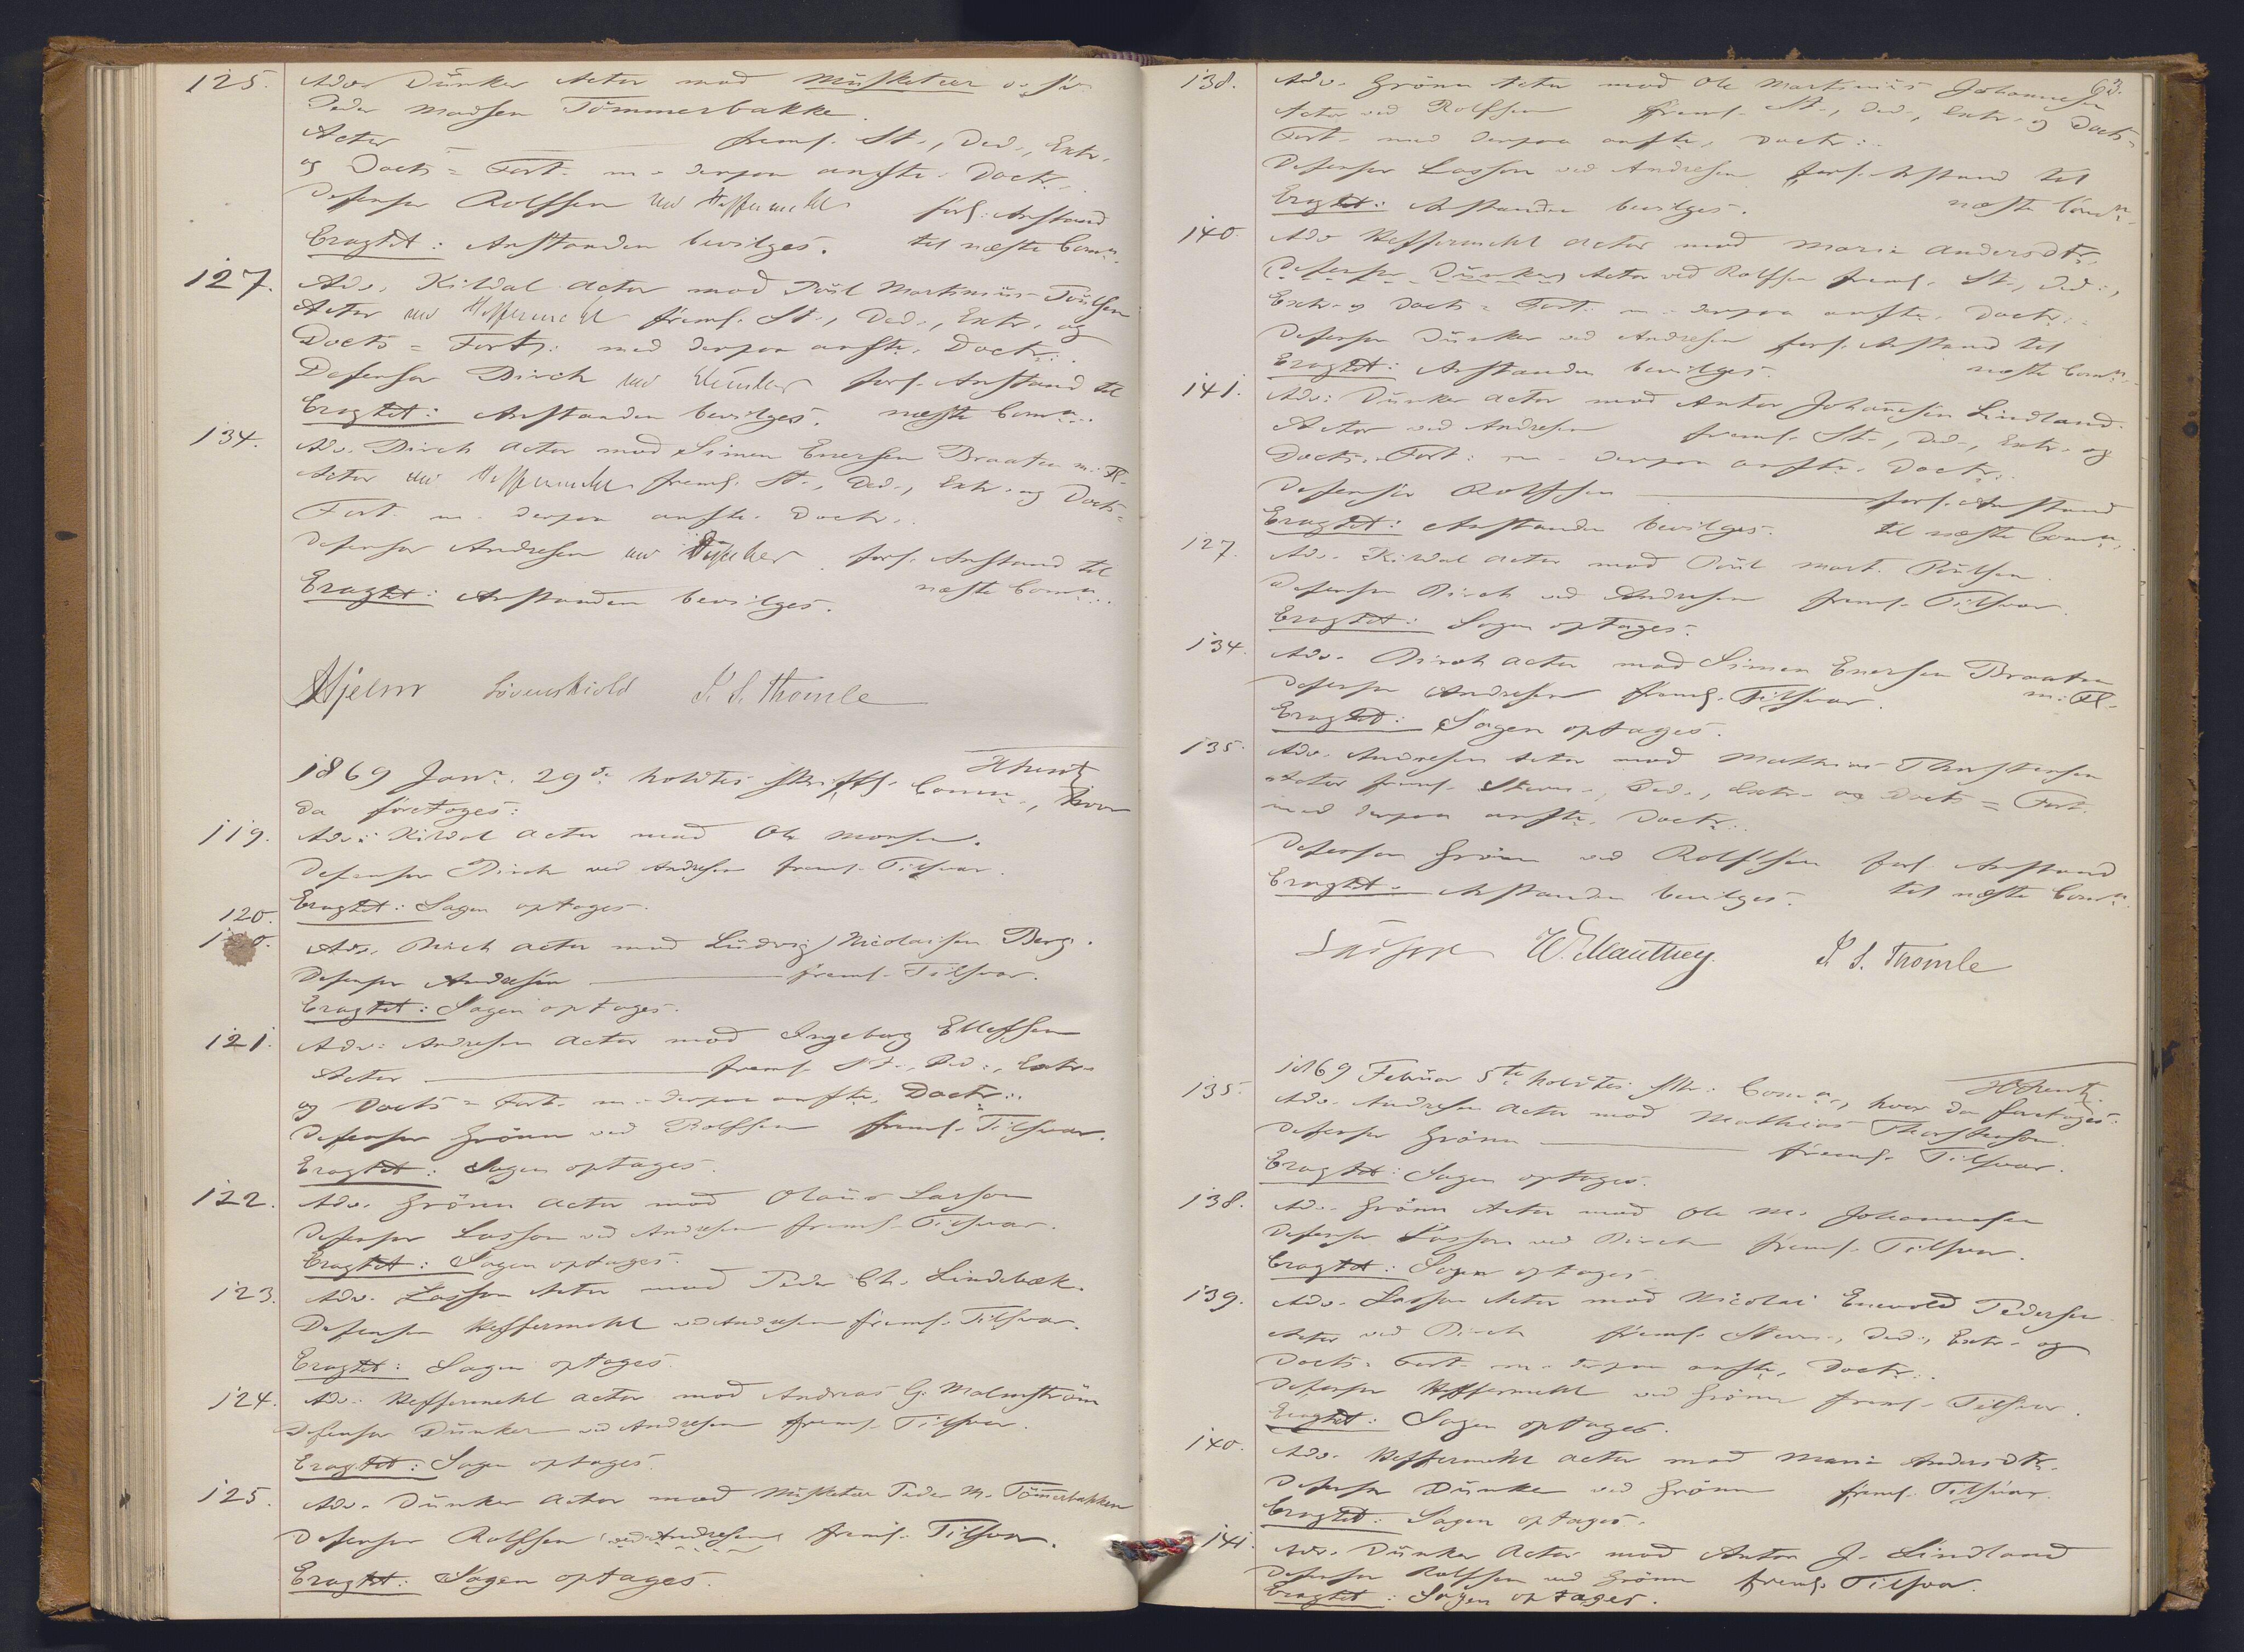 125. Adv. Dünker Actor mod Musketeer
Peder Madsen Tömmerbakke.
Actor — freml. St., Ded., Extr.
og Docts = Fort. m. derpaa anførte Doctr.
Defensor Rolfsen ved Heffermehl forl. Anstand
Eragtet: Anstanden bevilges. til næste Comn.
127. Adv. Kildal Actor mod Poul Martinius Poulsen
Actor ved Heffermehl freml. St., Ded., Extr. og
Docts = Fort. med derpaa anførte Doctr.
Defensor Birch ved Dünker forl. Anstand til
Eragtet: Anstanden bevilges. næste Comn.
134. Adv. Birch Actor mod Simen Enersen Braaten m. Fl.
Actor ved Heffermehl freml. St., Ded., Extr. og Docts =
Fort. m. derpaa anførte Doctr.
Defensor Andresen ved Dünker forl. Anstand til
Eragtet: Anstanden bevilges. næste Comn.
Hjelm Løvenskiold S. S. Thomle
1869 Janr. 29de holdtes skriftl. Comn., hvor
da foretoges:
119. Adv. Kildal Actor mod Ole Monsen.
Defensor Birch ved Andresen freml. Tilsvar.
Eragtet: Sagen optages.
120.
Adv. Birch Actor mod Ludvig Nicolaisen Berg.
Defensor Andresen — freml. Tilsvar.
Eragtet: Sagen optages.
121. Adv. Andresen Actor mod Ingeborg Ellefsen
Actor — freml. St., Ded., Extr.
og Docts = Fort. m. derpaa anførte Doctr.
Defensor Grönn ved Rolfsen freml. Tilsvar.
Eragtet: Sagen optages.
122. Adv. Grönn Actor mod Olaus Larsen
Defensor Lasson ved Andresen freml. Tilsvar.
Eragtet: Sagen optages.
123. Adv. Lasson Actor mod Peder Ch. Lindebæk.
Defensor Heffermehl ved Andresen freml. Tilsvar.
Eragtet: Sagen optages.
124. Adv. Heffermehl Actor mod Andreas G. Malmström
Defensor Dünker ved Andresen freml. Tilsvar.
Eragtet: Sagen optages.
125. Adv. Dünker Actor mod Musketeer Peder M. Tömmerbakken
Defensor Rolfsen ved Andresen freml. Tilsvar.
Eragtet: Sagen optages.
63.
138. Adv. Grönn Actor mod Ole Martinius Johannesen
Actor ved Rolfsen freml. St., Ded., Extr. og Docts =
Fort. med derpaa anførte Doctr.
Defensor Lasson ved Andresen forl. Anstand til
Eragtet: Anstanden bevilges. næste Comn.
140. Adv. Heffermehl Actor mod Maria Andersdtr.
(Defensor Dünker) Actor ved Rolfsen freml. St., Ded.,
Extr. og Docts = Fort. m. derpaa anførte Doctr.
Defensor Dünker ved Andresen forl. Anstand til
Eragtet: Anstanden bevilges. næste Comn.
141. Adv. Dünker Actor mod Anton Johannesen Lindland.
Actor ved Andresen freml. St., Ded., Extr. og
Docts = Fort. m. derpaa anførte Doctr.
Defensor Rolfsen — forl. Anstand
Eragtet: Anstanden bevilges. til næste Comn.
127. Adv. Kildal Actor mod Poul Mart. Poulsen.
Defensor Birch ved Andresen freml. Tilsvar.
Eragtet: Sagen optages.
134. Adv. Birch Actor mod Simen Enersen Braaten
Defensor Andresen freml. Tilsvar. m. Fl.
Eragtet: Sagen optages.
135. Adv. Andresen Actor mod Mathias Thorstensen
Actor freml. Stevn., Ded., Extr. og Docts = Fort.
med derpaa anførte Doctr.
Defensor Grönn ved Rolfsen forl. Anstand
Eragtet: Anstanden bevilges. til næste Comn.
W. Manthey. S. S. Thomle
1869 Februar 5te holdtes skr. Comn., hvor da foretoges:
135. Adv. Andresen Actor mod Mathias Thorstensen.
Defensor Grönn — freml. Tilsvar.
Eragtet: Sagen optages.
138. Adv. Grönn Actor mod Ole M. Johannesen
Defensor Lasson ved Birch freml. Tilsvar.
Eragtet: Sagen optages.
139. Adv. Lasson Actor mod Nicolai Enevold Pedersen
Actor ved Birch freml. Stevn., Ded., Extr. og
Docts = Fort. m. derpaa anførte Doctr.
Defensor Heffermehl ved Grönn freml. Tilsvar.
Eragtet: Sagen optages.
140. Adv. Heffermehl Actor mod Maria Andersdtr.
Defensor Dünker ved Grönn freml. Tilsvar.
Eragtet: Sagen optages.
141. Adv. Dünker Actor mod Anton J. Lindland
Defensor Rolfsen ved Grönn freml. Tilsvar.
Eragtet: Sagen optages.